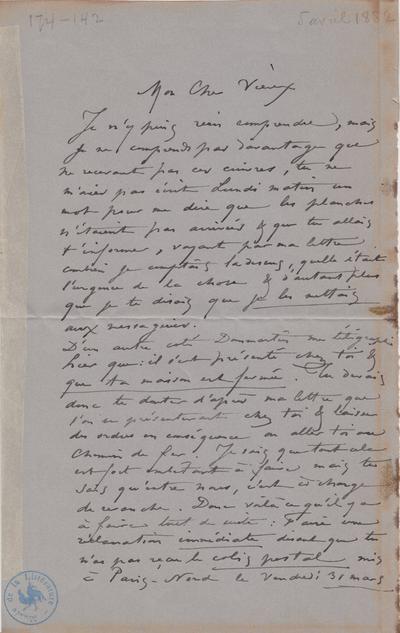 174-142
5 avril 188
Mon Cher Vieux
Je n'y puis rien comprendre, mais
je ne comprends pas davantage que
ne recevant pas ces cuivres, tu ne
m'aies pas écrit Lundi matin un
mot pour me dire que les planches
n'étaient pas arrivées & que tu allais
t'informer, voyant par ma lettre
combien je comptais là dessus, quelle était
l'urgence de la chose & d'autant plus
que je te disais que je les mettais
aux messageries.
D'un autre coté Dammartin me télégraphi
hier que: il s'est présenté chez toi &
que ta maison est fermée. Tu devais
donc te douter d'après ma lettre que
l'on se présenterait chez toi & laisser
des ordres en conséquence ou aller toi au
Chemin de fer. Je sais que tout cela
est fort embêtant à faire mais tu
sais qu'entre nous, c'est à charge
de revanche. Donc voilà ce qu'il y a
à faire tout de suite: Faire une
réclamation immédiate disant que tu
n'as pas reçu le colis postal mis
à Paris-Nord le Vendredi 31 mars
de la Littérature